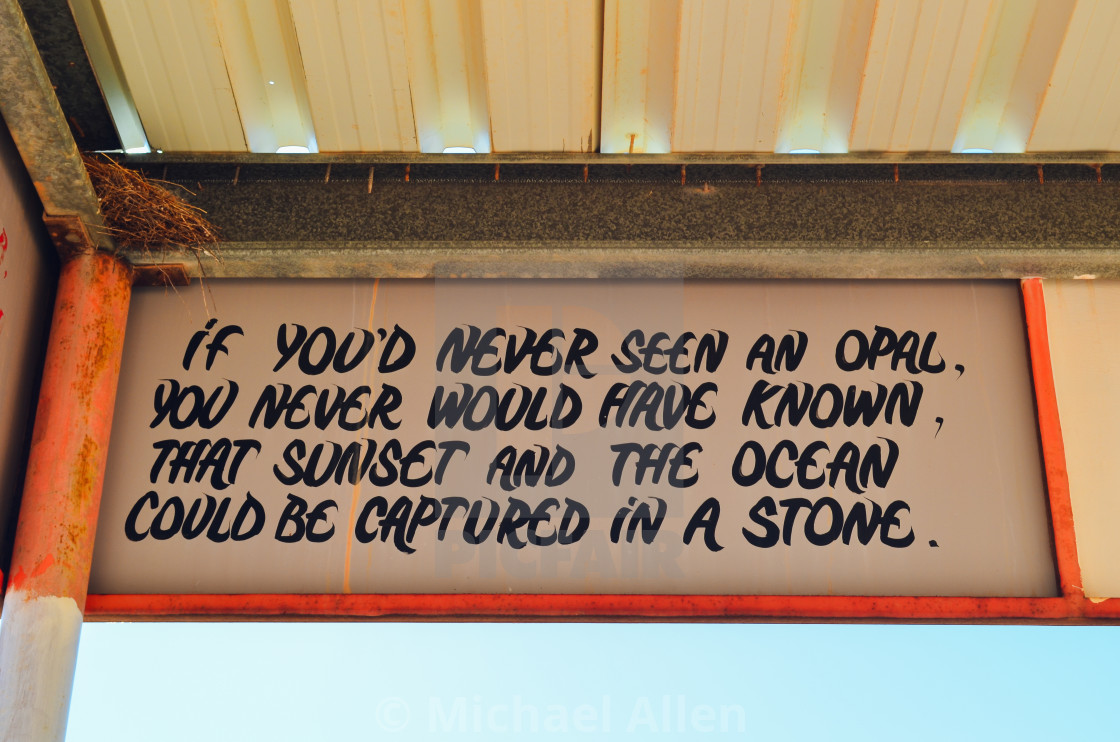 iF YOU'D NEVER SEEN AN OPAL,
YOU NEVER WOULD HAVE KNOWN,
THAT SUNSET AND THE OCEAN
COULD BE CAPTURED iN A STONE.
PICFAIR
© Michael Allen